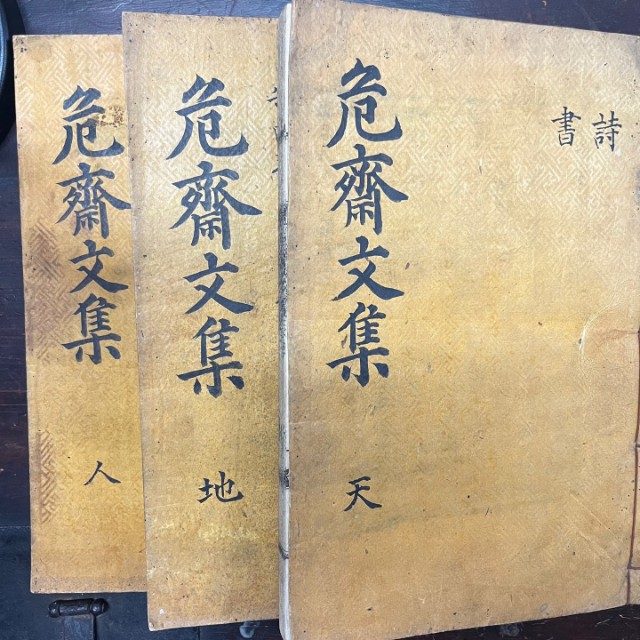 詩
書
危齋文集
天
危齋文集
地
危齋文集
人